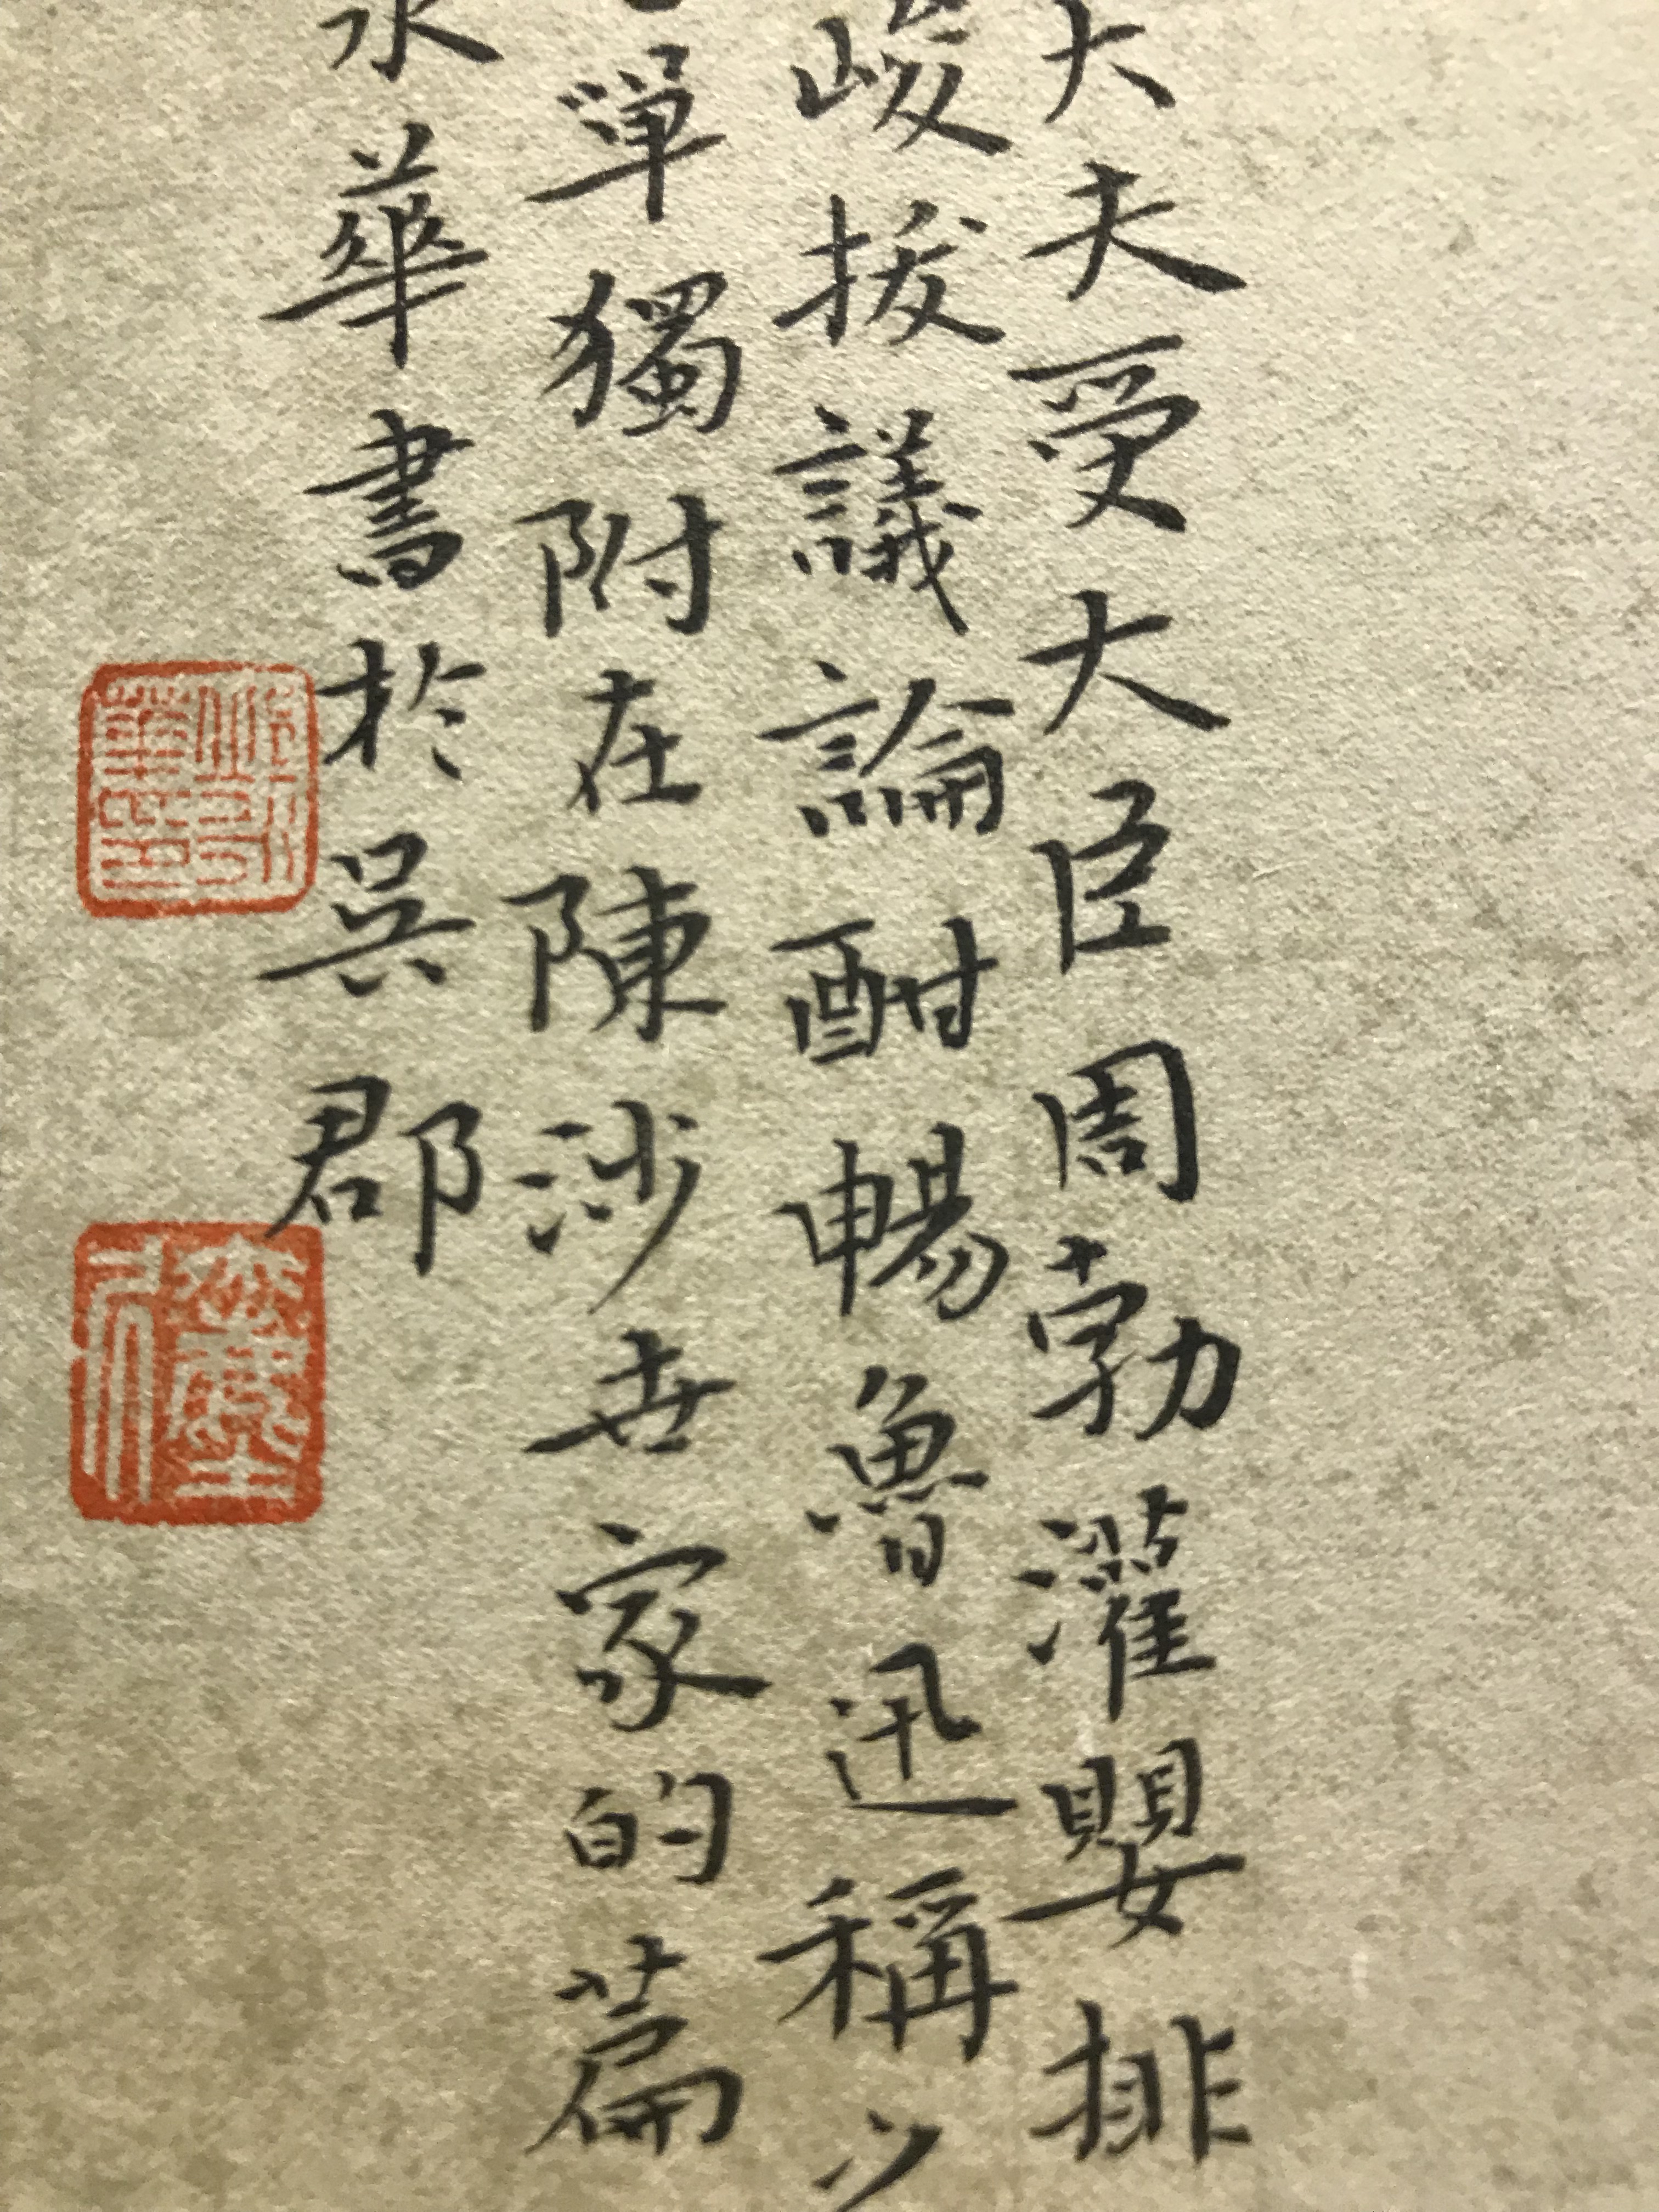 大夫受大臣周勃灌嬰排
峻拔議論酣暢魯迅稱
單獨附在陳涉世家的篇
永華書於吳郡